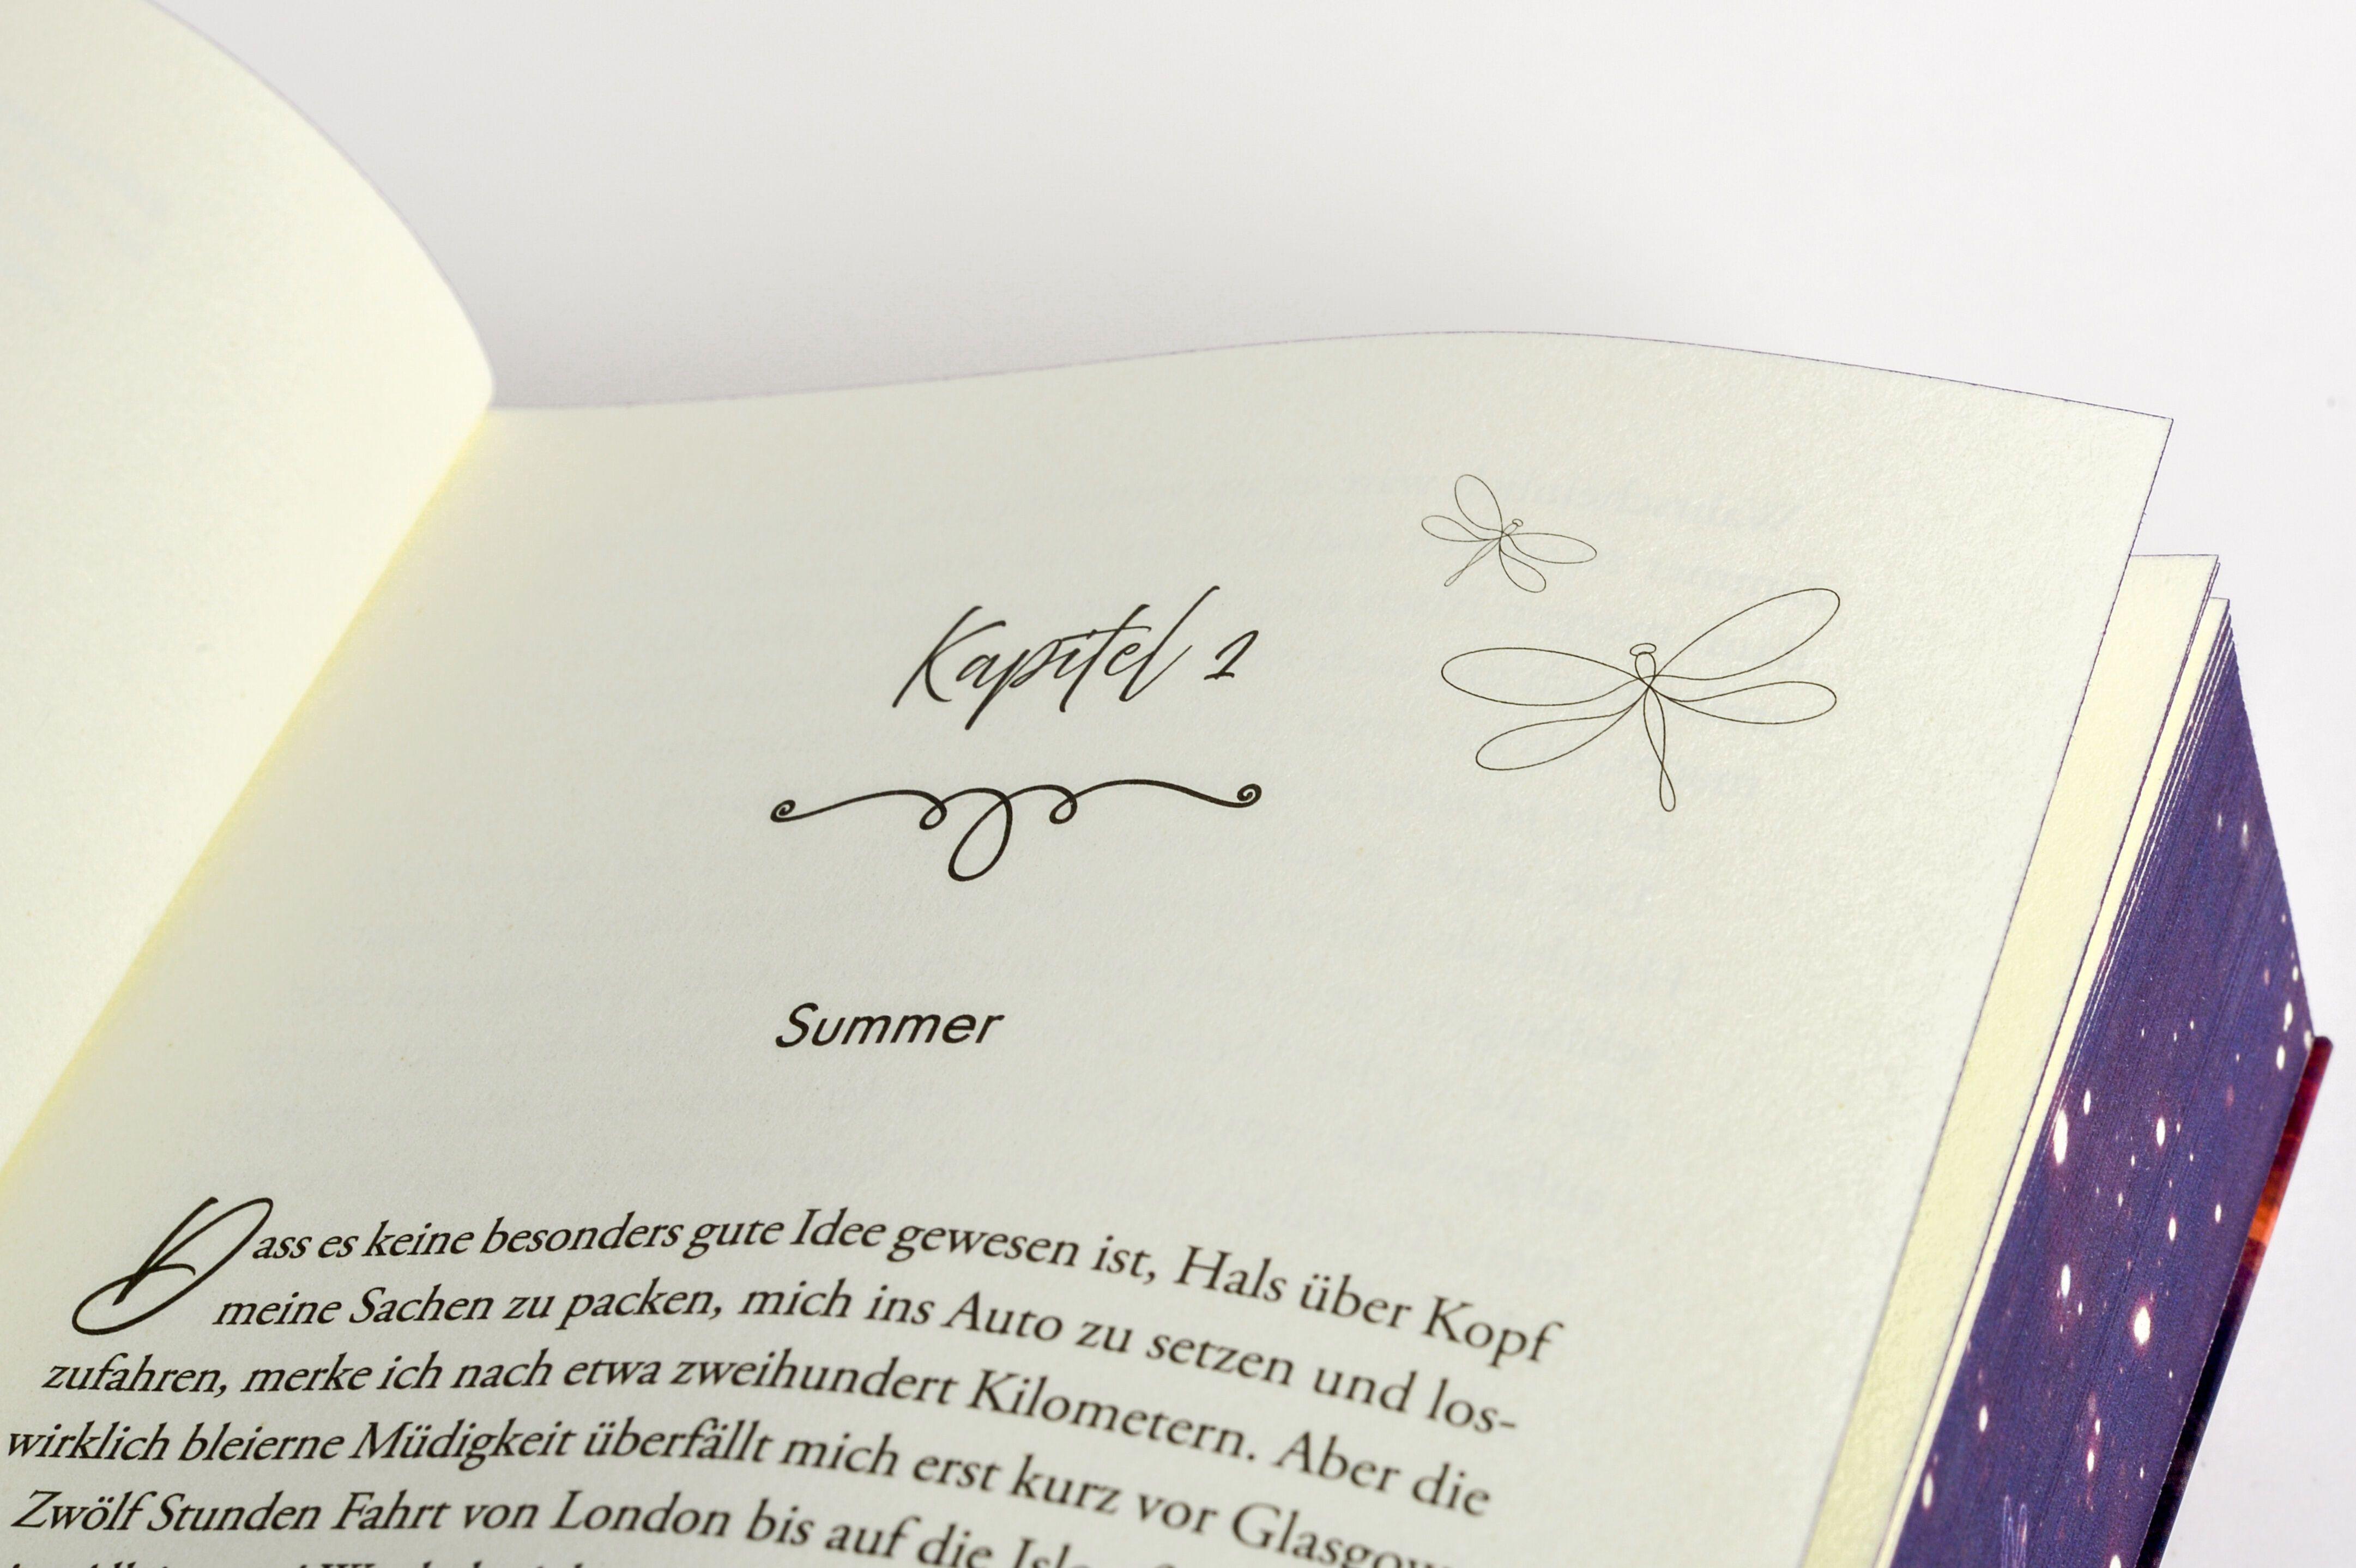 Kapitel 1
Summer
Dass es keine besonders gute Idee gewesen ist, Hals über Kopf
meine Sachen zu packen, mich ins Auto zu setzen und los-
zufahren, merke ich nach etwa zweihundert Kilometern. Aber die
wirklich bleierne Müdigkeit überfällt mich erst kurz vor Glasgow
Zwölf Stunden Fahrt von London bis auf die